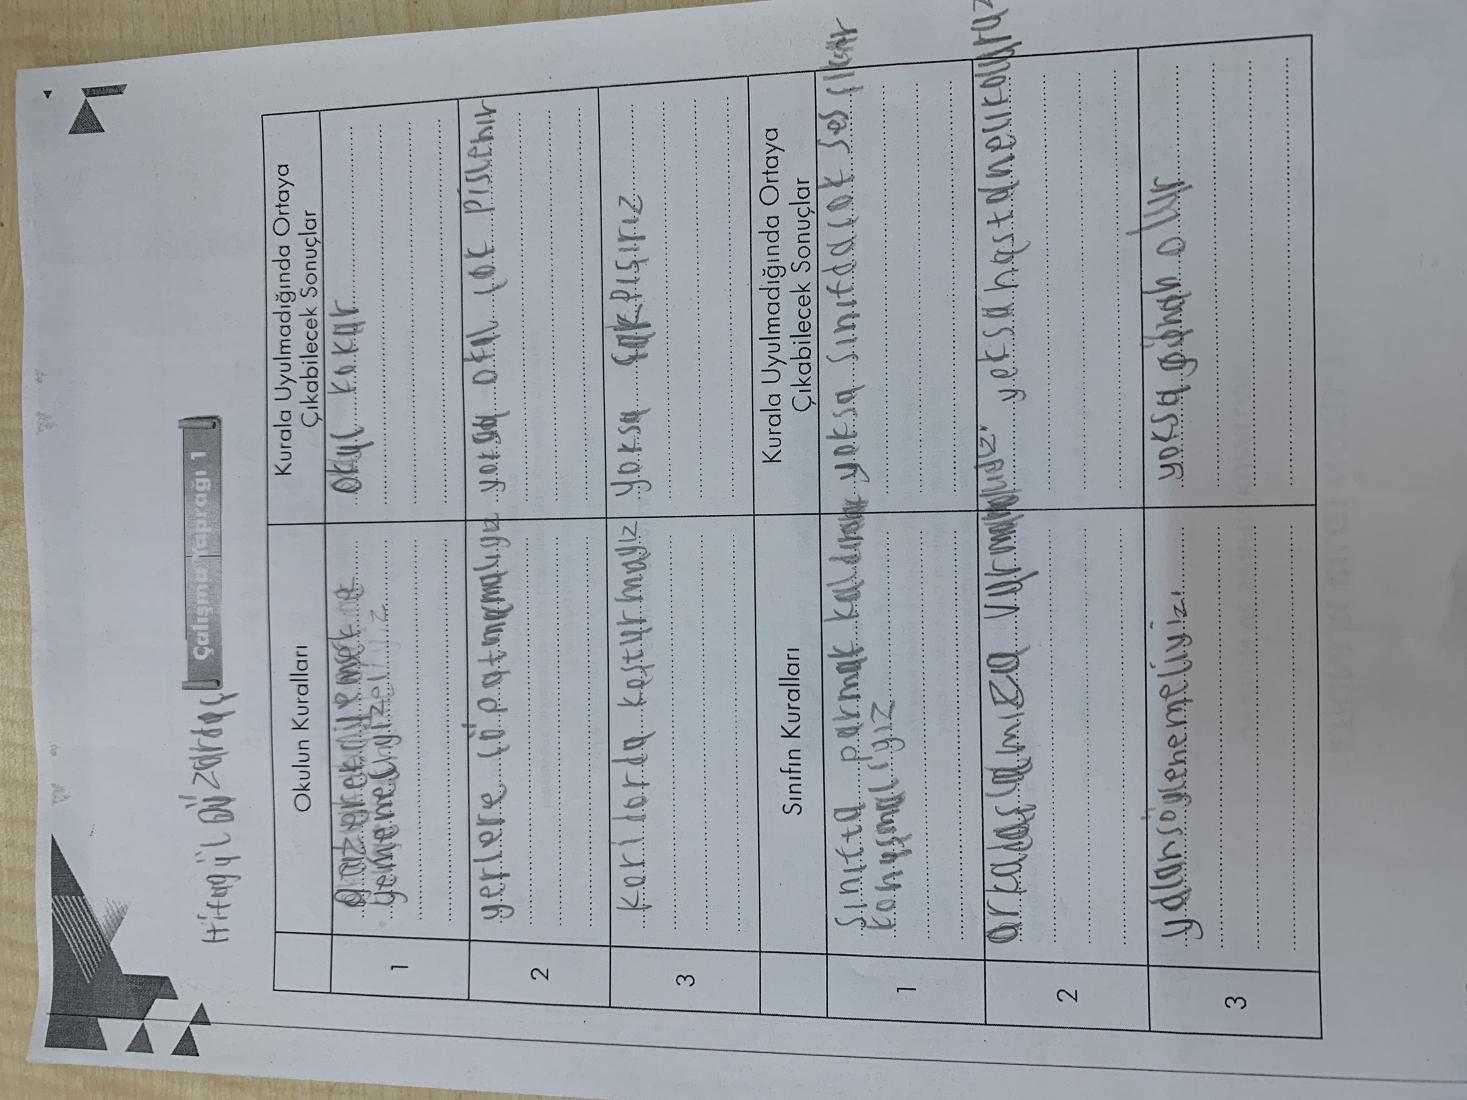 Çalışma Yaprağı 1
Okulun Kuralları
Kurala Uyulmadığında Ortaya
Çıkabilecek Sonuçlar
1
yemek
okul kokar
2
yerlere çöp atmamalıyız
yoksa okul çok pislenir
3
koridorda kosturmayız
yoksa çakışırız
Sınıfın Kuralları
Kurala Uyulmadığında Ortaya
Çıkabilecek Sonuçlar
1
Sınıfta parmak kaldırarak
konuşmalıyız
yoksa sınıfda çok ses çıkar
2
arkadaslarmıza vurmamalıyız
yoksa hastanelik oluruz
3
yalan söylenemeliyiz
yoksa günah olur